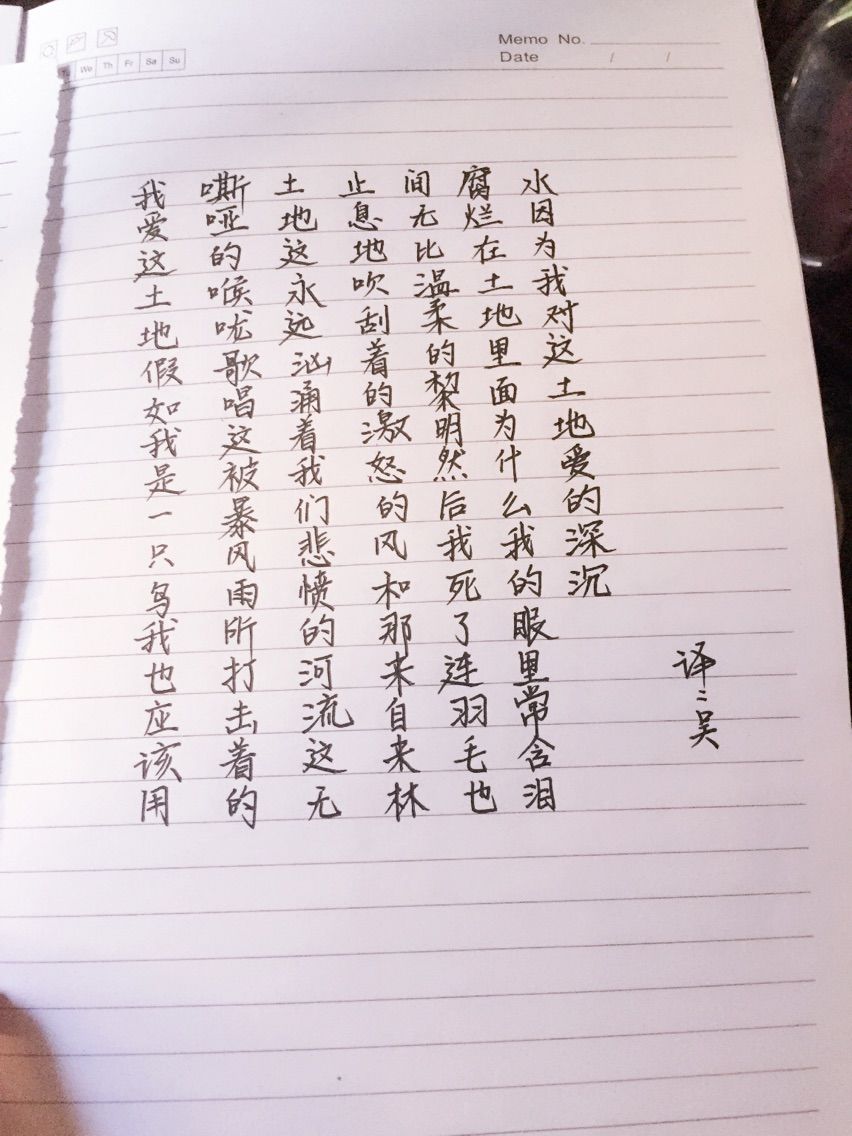 Memo No.
Date / /
We Th Fr Sa Su
我爱这土地假如我是一只鸟我也应该用
嘶哑的喉咙歌唱这被暴风雨所打击着的
土地这永远汹涌着我们悲愤的河流这无
止息地吹刮着的激怒的风和那来自来林
间无比温柔的黎明然后我死了连羽毛也
腐烂在土地里面为什么我的眼里常含泪
水因为我对这土地爱的深沉
译:吴